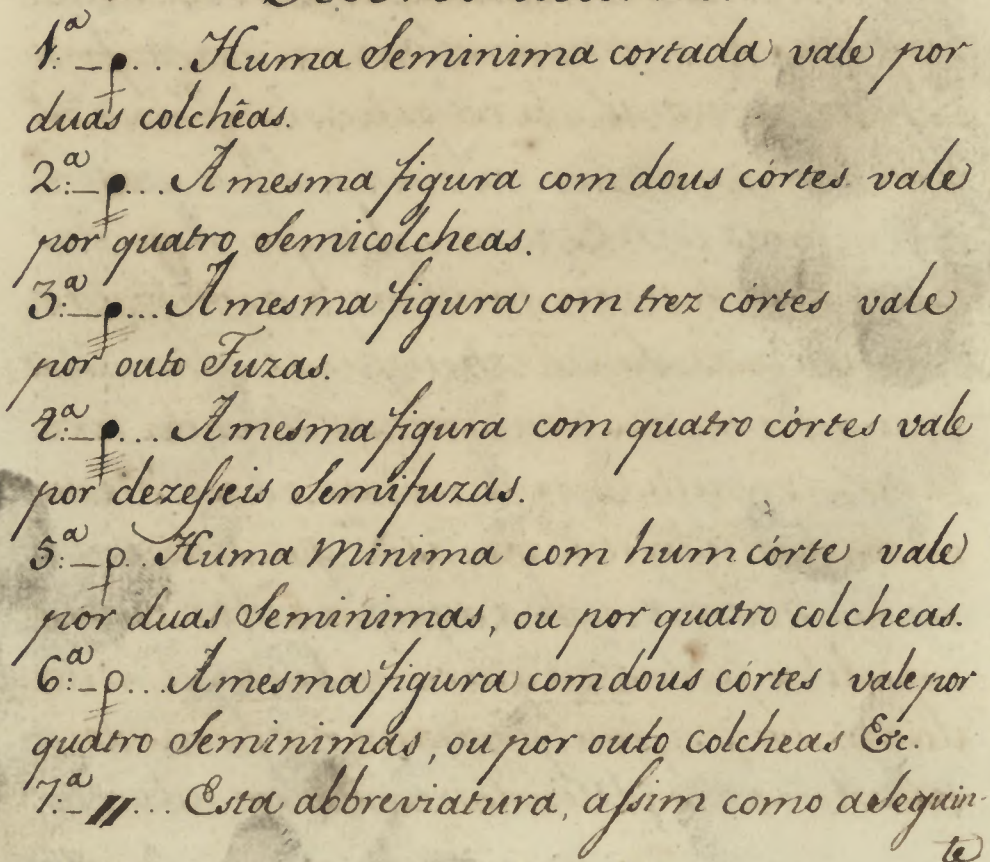 1.ª _ ... Huma Seminima cortada vale por
duas colchêas.
2.ª _ ... A mesma figura com dous córtes vale
por quatro Semicolcheas.
3.ª _ ... A mesma figura com trez córtes vale
por outo Fuzas.
4.ª _ ... A mesma figura com quatro córtes vale
por dezeſseis Semifuzas.
5.ª _ .. Huma Minima com hum córte vale
por duas Seminimas, ou por quatro colcheas.
6.ª _ ... A mesma figura com dous córtes vale por
quatro Seminimas, ou por outo colcheas &c.
7.ª _ // ... Esta abbreviatura, aſsim como a Seguin-
te